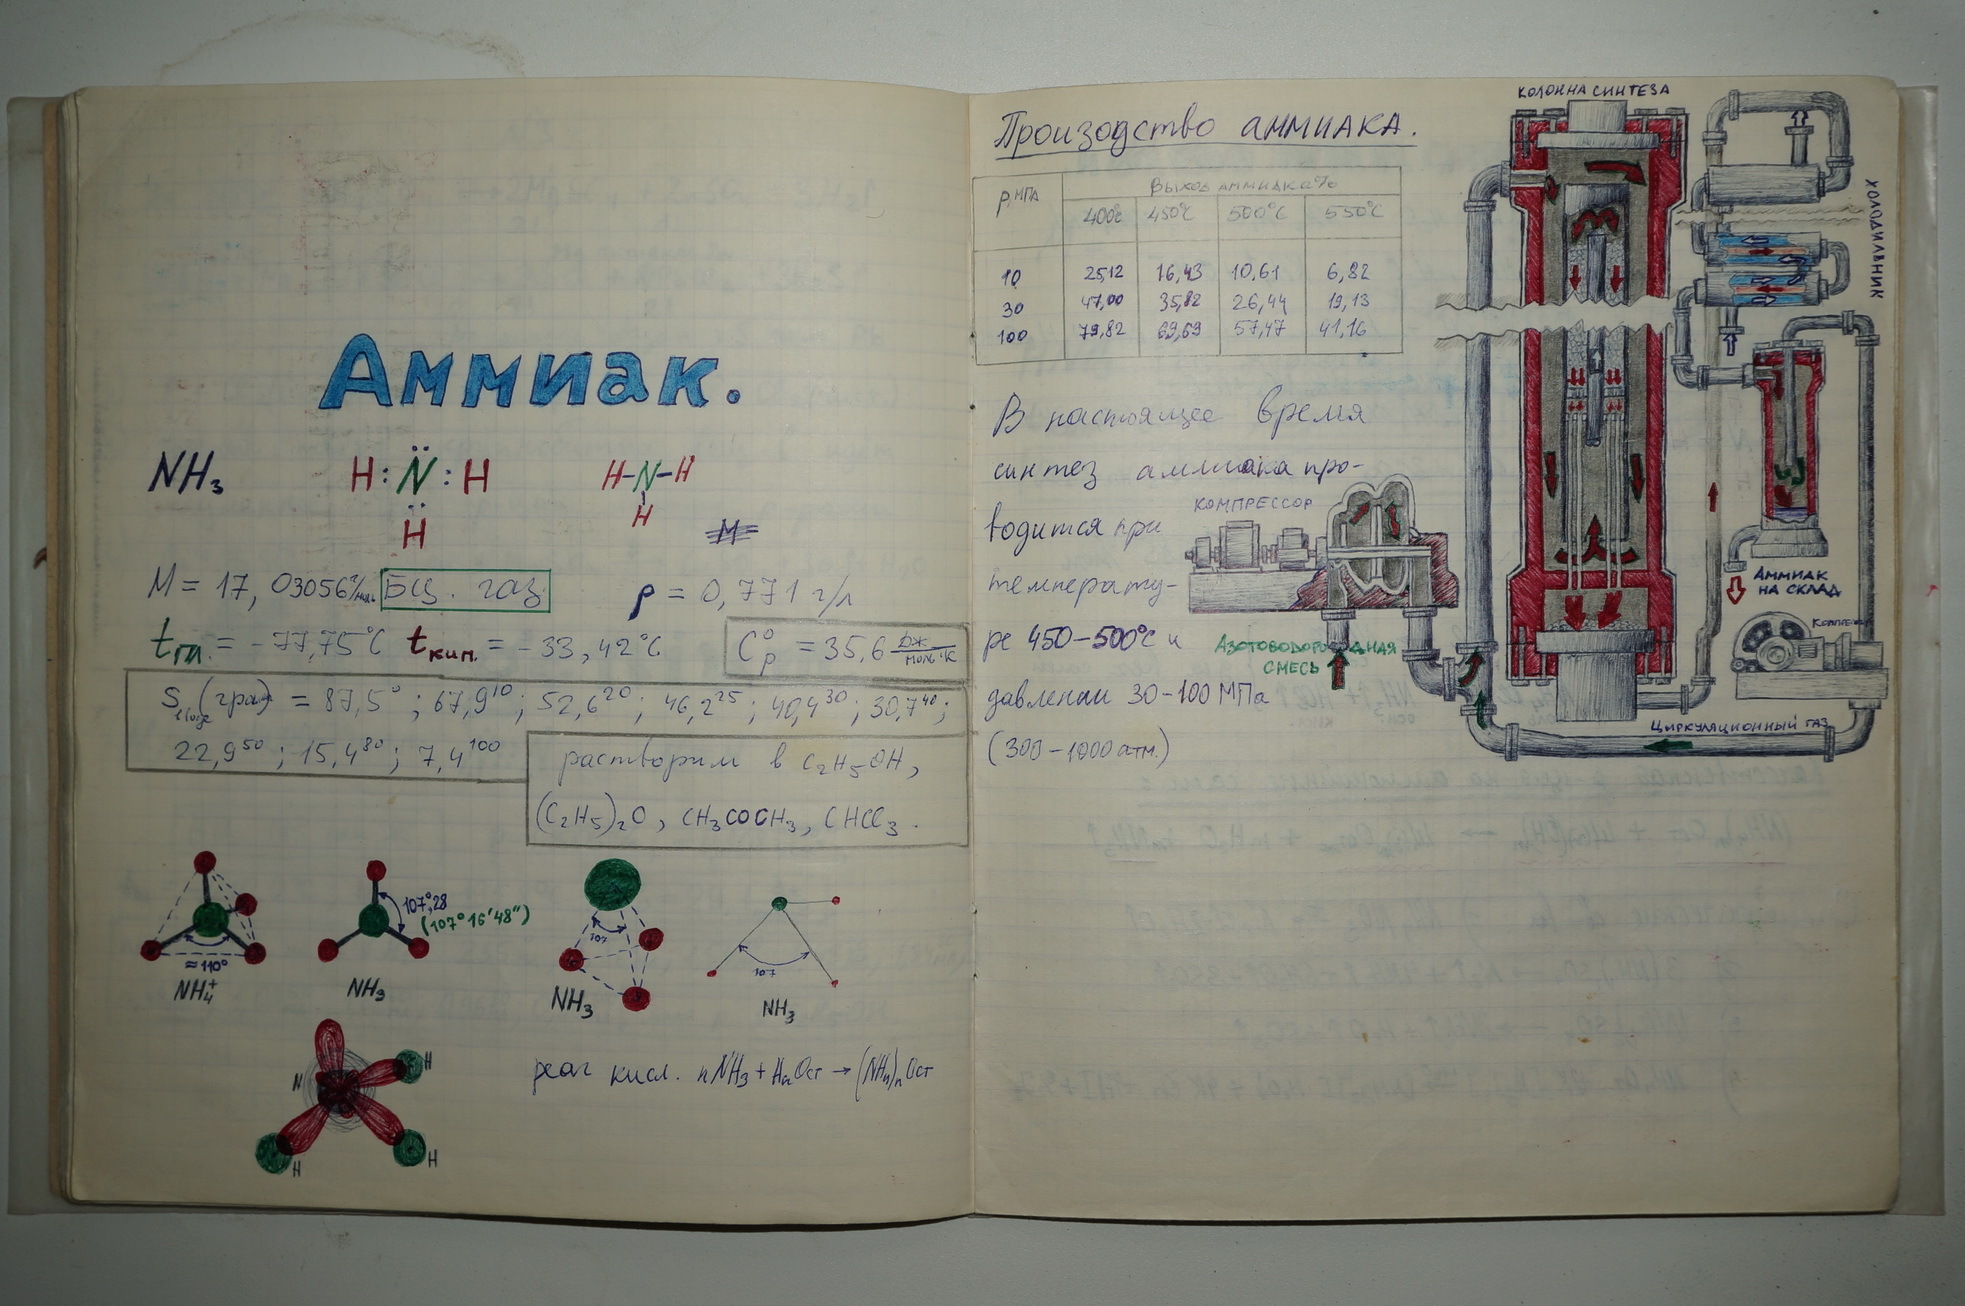 Аммиак.
NH₃
H:N̈:H
Ḧ
H-N-H
H
M = 17,03056 г/моль
Бц. газ
ρ = 0,771 г/л
tпл. = -77,75°C tкип. = -33,42°C
C°p = 35,6 Дж/моль·К
S (гра) = 87,5⁰; 67,9¹⁰; 52,6²⁰; 46,2²⁵; 40,4³⁰; 30,7⁴⁰;
22,9⁵⁰; 15,4⁸⁰; 7,4¹⁰⁰
растворим в C₂H₅OH,
(C₂H₅)₂O, CH₃COCH₃, CHCl₃.
≈110°
NH₄⁺
107°,28
(107°16'48")
NH₃
107
NH₃
107
NH₃
N
H
H
H
реаг кисл. nNH₃ + HₙОст → (NH₄)ₙОст
Произодство аммиака.
P, МПА
Выход аммиака %
400°c 450°C 500°C 550°C
10 25,12 16,43 10,61 6,82
30 47,00 35,82 26,44 19,13
100 79,82 69,69 57,47 41,16
В настоящее время
синтез аммиака про-
водится при
температу-
ре 450-500°C и
давлении 30-100 МПа
(300-1000 атм.)
КОЛОННА СИНТЕЗА
ХОЛОДИЛЬНИК
КОМПРЕССОР
АЗОТОВОДОРОДНАЯ
СМЕСЬ
АММИАК
НА СКЛАД
КОМПРЕССОР
ЦИРКУЛЯЦИОННЫЙ ГАЗ